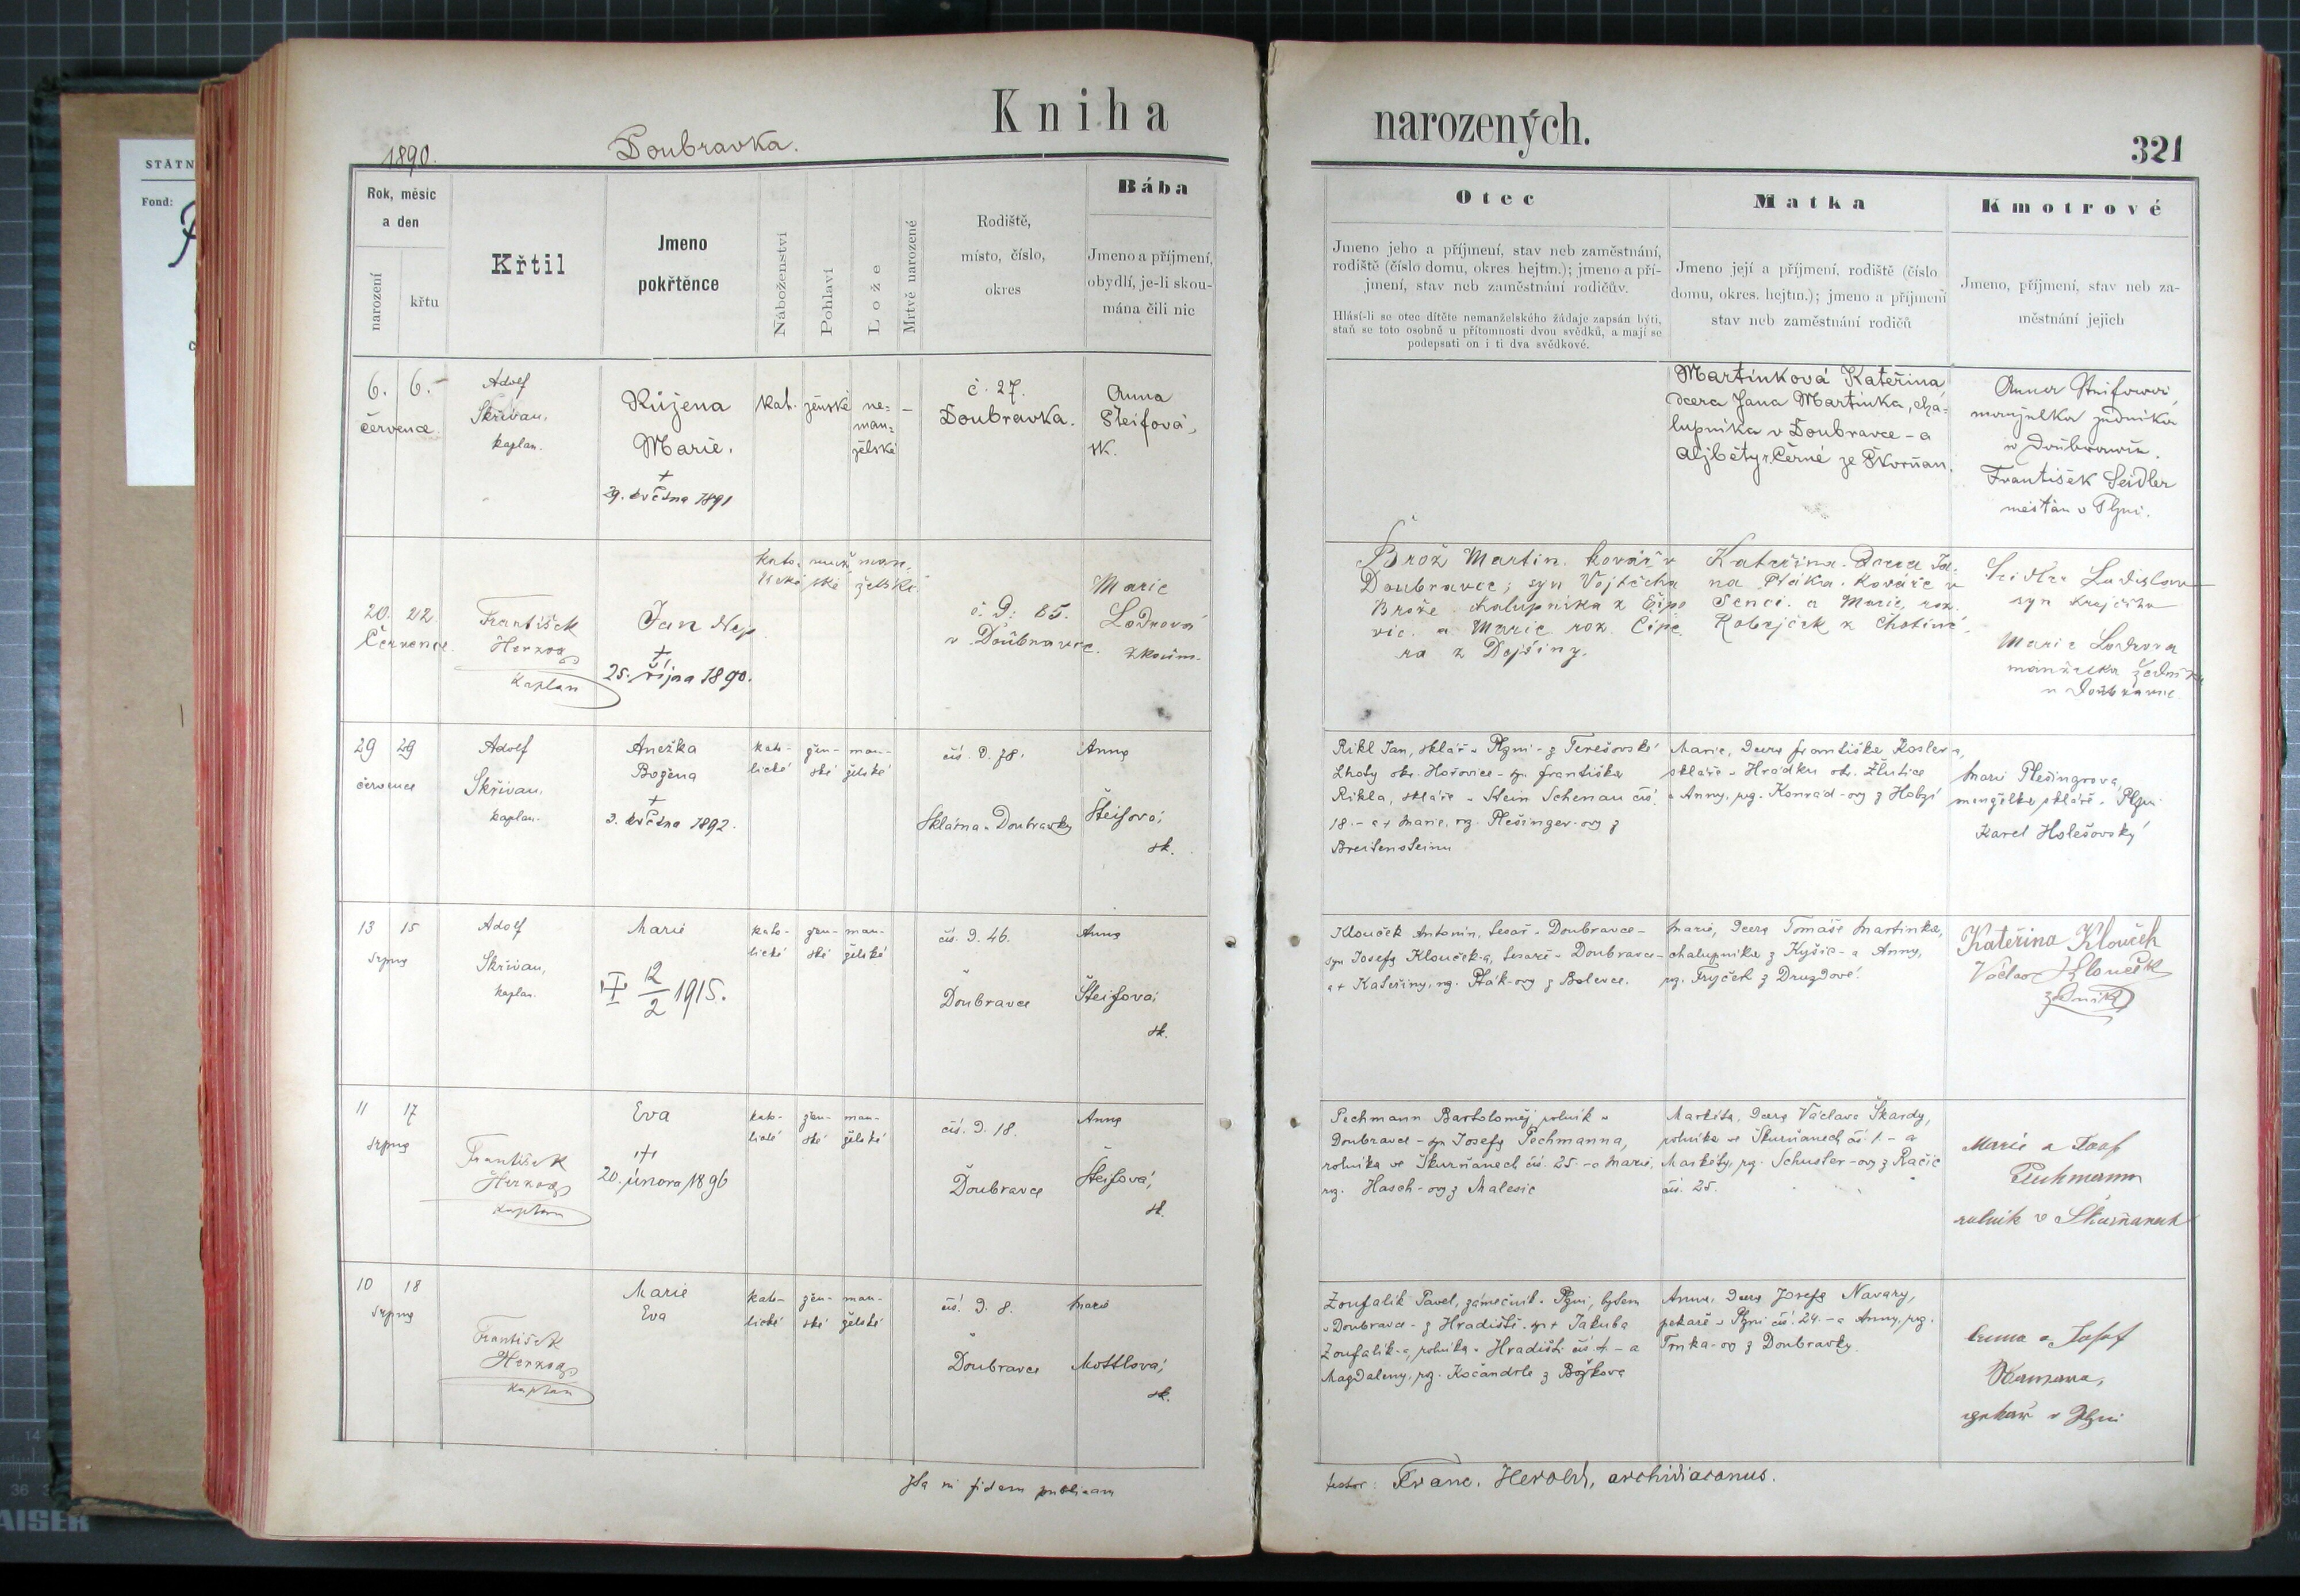 STÁTN
Fond:
Kniha narozených.
1890.
Doubravka.
321
Rok, měsíc
a den
narození
křtu
Křtil
Jmeno
pokřtěnce
Náboženství
Pohlaví
Lože
Mrtvě narozené
Rodiště,
místo, číslo,
okres
Bába
Jmeno a příjmení,
obydlí, je-li skou-
mána čili nic
Otec
Jmeno jeho a příjmení, stav neb zaměstnání,
rodiště (číslo domu, okres hejtm.); jmeno a pří-
jmení, stav neb zaměstnání rodičův.
Hlásí-li se otec dítěte nemanželského žádaje zapsán býti,
staň se toto osobně u přítomnosti dvou svědků, a mají se
podepsati on i ti dva svědkové.
Matka
Jmeno její a příjmení, rodiště (číslo
domu, okres. hejtm.); jmeno a příjmení
stav neb zaměstnání rodičů
Kmotrové
Jmeno, příjmení, stav neb za-
městnání jejich
6. 6.
července
Adolf
Skřivan,
kaplan.
Růžena
Marie.
†
29. května 1891
kat.
ženské
ne=
man=
želské
–
č. 27.
Doubravka.
Anna
Šteifová,
sk.
Martínková Kateřina
dcera Jana Martinka, cha=
lupníka v Doubravce - a
Alžběty r. Černé ze Skvrňan.
Anna Šteifová,
manželka zedníka
v Doubravce.
František Seidler
měšťan v Plzni.
20. 22.
Července
František
Herzog
kaplan
Jan Nep.
†
25. října 1890.
kato-
lické
muž-
ské
man-
želské
č. D: 85.
v Doubravce.
Marie
Lodrová
zkoum.
Brož Martin. kovář v
Doubravce; syn Vojtěcha
Brože. chalupníka z Ejpo
vic. a Marie roz. Cipe
ra z Dejšiny.
Kateřina. Dcera Ja-
na Ptáka. kováře v
Senci. a Marie, roz.
z Chotiné.
Ladislav
syn krejčího
Marie Lodrova
manželka zedníka
v Doubravce
29 29
července
Adolf
Skřivan,
kaplan.
Anežka
Božena
†
3. května 1892.
kato-
lické
žen-
ské
man-
želské
čís. D. 78.
Sklárna u Doubravky
Anna
Šteifová;
sk.
Rikl Jan, sklář v Plzni - z Terešovské
Lhoty okr. Hořovice - sy. Františka
Rikla, skláře v Stein Schenau čís.
18. - a + Marie, rz. Plešinger-ovy z
Breitensteinu
Marie, dcera Františka Koslera,
skláře v Hrádku ok. Žlutice
a Anny, rz. Konrad-ovy z
Marie Plešingrova,
manželka skláře v Plzni
Karel Holešovský
13 15
srpna
Adolf
Skřivan,
kaplan.
Marie
12
2 1915.
kato-
lické
žen-
ské
man-
želské
čís. D. 46.
Doubravce
Anna
Šteifová;
sk.
Klouček Antonín, tesař v Doubravce -
syn Josefa Klouček-a, tesaře v Doubravce -
a + Kateřiny, rz. Pták-ovy z Bolevce.
Marie, dcera Tomáše Martinka,
chalupníka z Kyšic - a Anny,
rz. Fryček z Druzdové.
Kateřina Klouček
Václav Klouček
zedník
11 17
srpna
František
Herzog
kaplan
Eva
†
20. února 1896
kato-
lické
žen-
ské
man-
želské
čís. D. 18.
Doubravce
Anna
Šteifová;
sk.
Pechmann Bartoloměj, rolník v
Doubravce - syn Josefa Pechmanna,
rolníka ve Škurňanech čís. 25. - a Marie,
rz. Hasch-ovy z Malesic
Markéta, dcera Václava Škardy,
rolníka ve Škurňanech čís. 1. - a
Markéty, rz. Schuster-ovy z Račic
čís. 25.
Marie a Josef
Pechmann
rolník v Škurňanech
10 18
srpna
František
Herzog
kaplan
Marie
Eva
kato-
lické
žen-
ské
man-
želské
čís. D. 8.
Doubravce
Marie
Mottlová;
sk.
Zoufalík Pavel, zámečník v Plzni, bytem
v Doubravce - z Hradiště. sy. + Jakuba
Zoufalík-a, rolníka v Hradišti čís. 1. - a
Magdaleny, rz. Kočandrle z Božkova
Anna, dcera Josefa Navary,
pekaře v Plzni čís. 24. - a Anny, rz.
Trnka-ovy z Doubravky.
Anna a Josef
pekař v Plzni
Ita in fidem publicam
testor: Franc. Herold, archidiaconus.